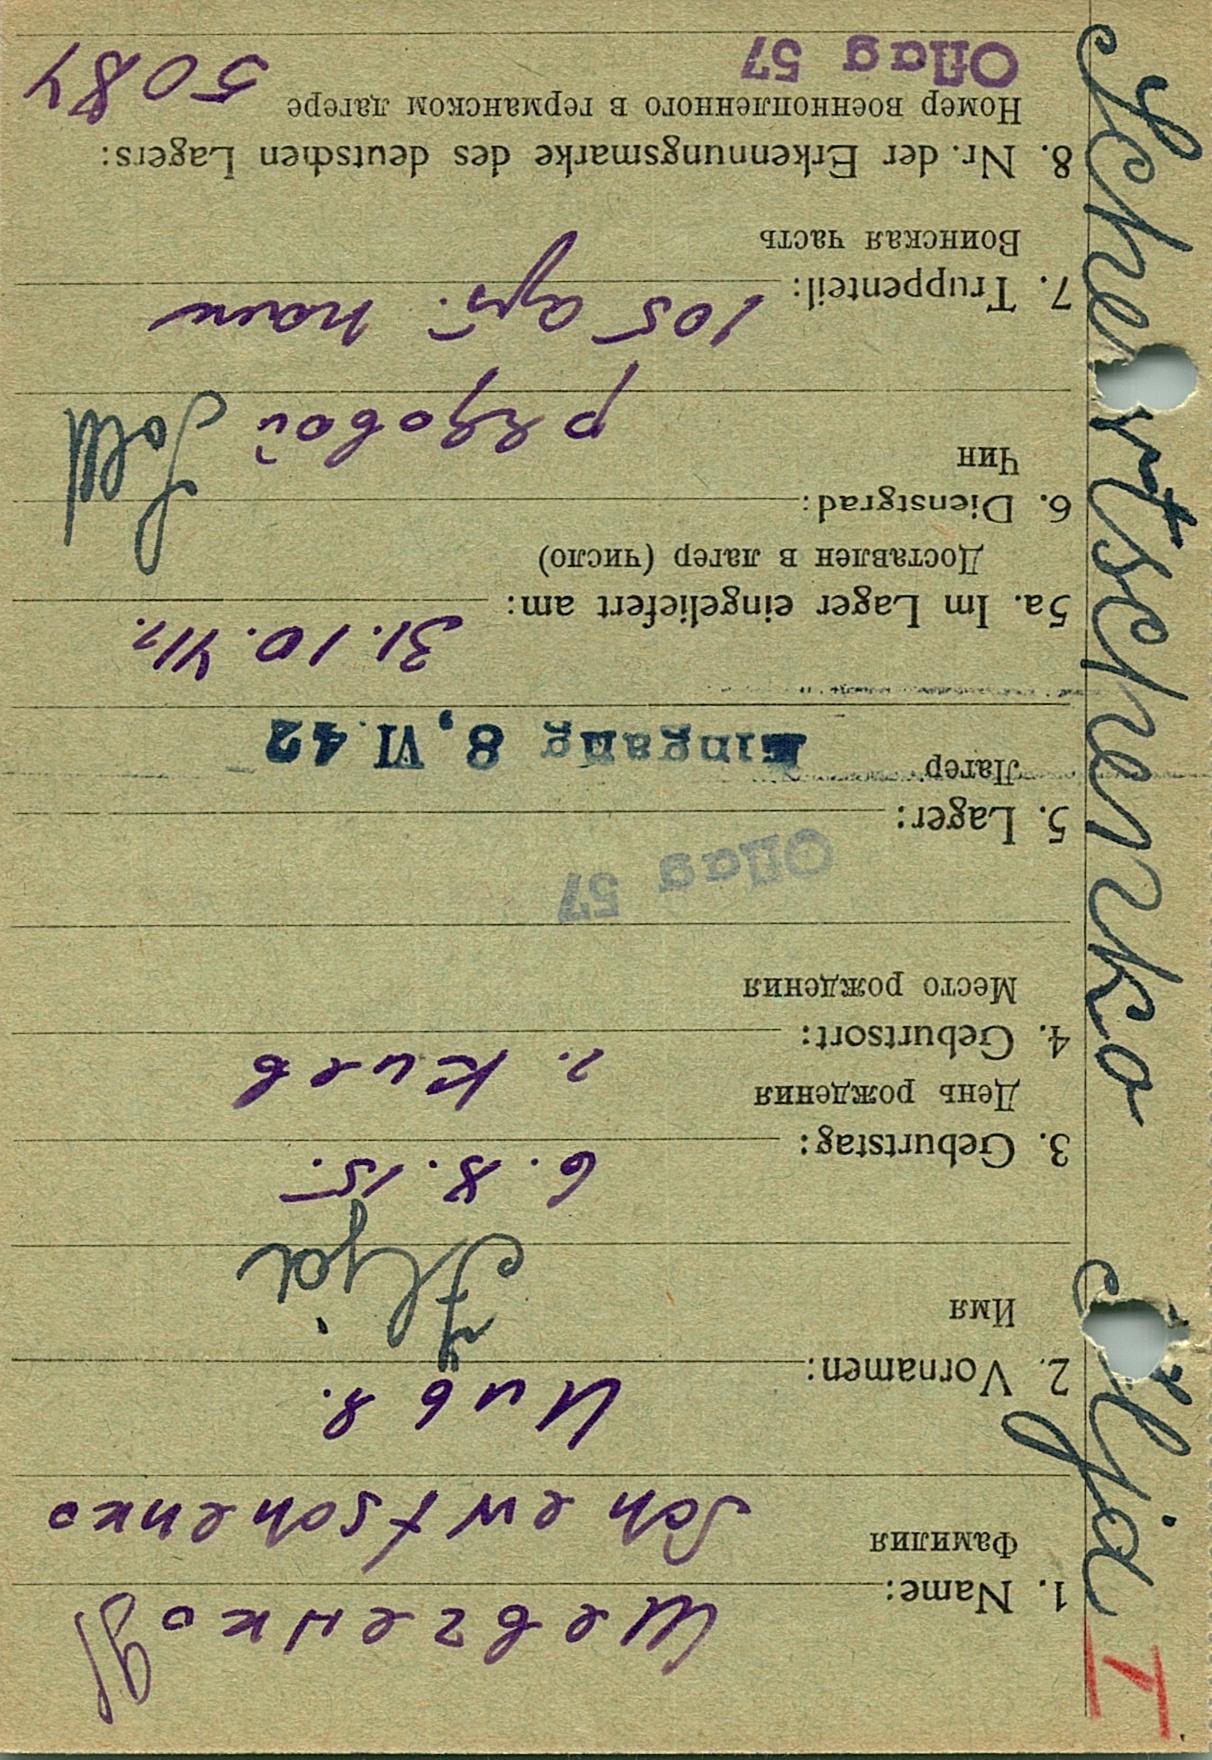 Schewtschenko Ilja I
1. Name: Шевченко
Фамилия
Schewtschenko
2. Vornamen: Илья.
Имя
Ilja
3. Geburtstag: 6. 8. 15.
День рождения
4. Geburtsort: г. Киев
Место рождения
Oflag 57
5. Lager:
Лагерь
Eingang 8. VI. 42
5a. Im Lager eingeliefert am: 31. 10. 41 г.
Доставлен в лагерь (число)
6. Dienstgrad: рядовой Sold
Чин
7. Truppenteil: 105 арт. полк
Воинская часть
8. Nr. der Erkennungsmarke des deutschen Lagers:
Номер военнопленного в германском лагере 5084
Oflag 57